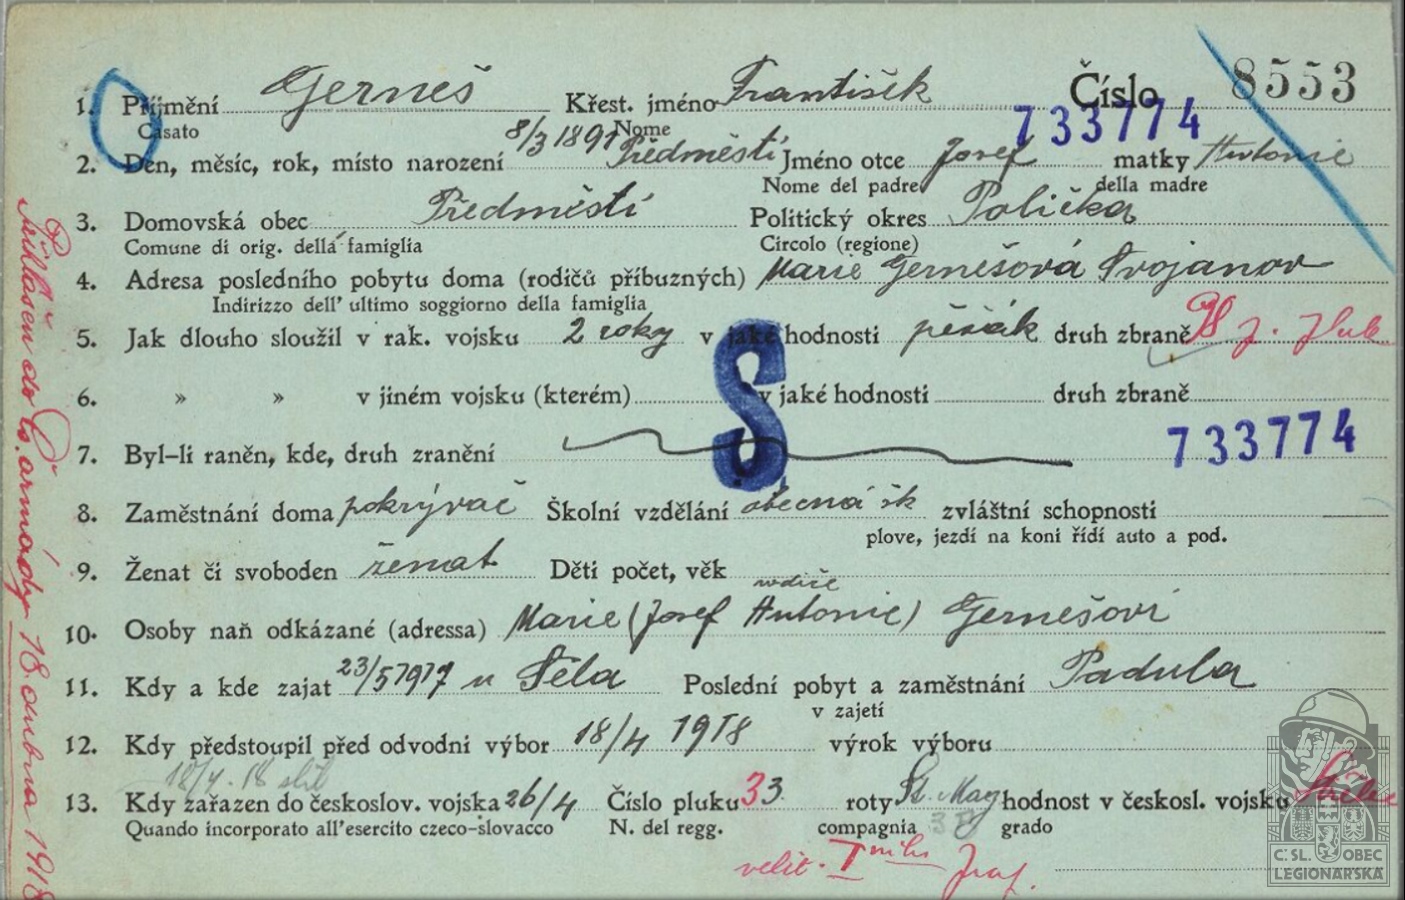 1. Příjmení Gerneš Křest. jméno František Číslo 8553
Casato Nome 733774
2. Den, měsíc, rok, místo narození 8/3 1891 Předměstí Jméno otce Josef matky Antonie
Nome del padre della madre
3. Domovská obec Předměstí Politický okres Polička
Comune di orig. della famiglia Circolo (regione)
4. Adresa posledního pobytu doma (rodičů příbuzných) Marie Gernešová Svojanov
Indirizzo dell' ultimo soggiorno della famiglia
5. Jak dlouho sloužil v rak. vojsku 2 roky v jaké hodnosti pěšák druh zbraně
S
6. » » v jiném vojsku (kterém) v jaké hodnosti druh zbraně
7. Byl-li raněn, kde, druh zranění 733774
8. Zaměstnání doma pokrývač Školní vzdělání obecná šk zvláštní schopnosti
plove, jezdí na koni řídí auto a pod.
9. Ženat či svoboden ženat Děti počet, věk
rodiče
10. Osoby naň odkázané (adressa) Marie (Josef Antonie) Gernešovi
11. Kdy a kde zajat 23/5 1917 u Sela Poslední pobyt a zaměstnání Padula
v zajetí
12. Kdy předstoupil před odvodní výbor 18/4 1918 výrok výboru
18/4. 18 slib
13. Kdy zařazen do českoslov. vojska 26/4 Číslo pluku 33 roty St. Mag hodnost v českosl. vojsku
Quando incorporato all'esercito czeco-slovacco N. del regg. compagnia grado
velit.
Přihlášen do Čs. armády 18 dubna 1918
Č. SL. OBEC
LEGIONÁŘSKÁ